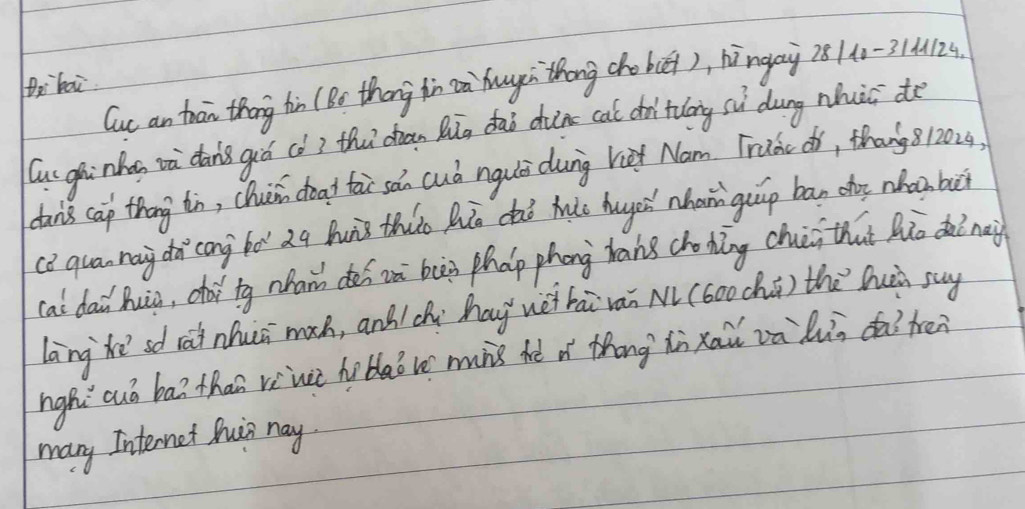 Đề bài.
Cục an toàn thông tin (Bộ thông tin và truyền thông cho biết), từ ngày 28/10-3/11/24,
Cục ghi nhận và đánh giá có 3 thủ đoạn lừa đảo được các đối tượng sử dụng nhiều để
đánh cắp thông tin, chiếm đoạt tài sản của người dùng Việt Nam. Trước đó, tháng 8/2024,
cơ quan này đã công bố 24 hình thức lừa đảo trực tuyến nhằm giúp bạn đọc nhận biết
các dấu hiệu, đối tg nhắm đến và biện pháp phòng tránh cho từng chiêu thức lừa đảo này
Là ng trẻ sd rất nhiều mxh, anh/chị hãy viết bài văn NL (600 chữ) thể hiện suy
nghĩ của bản thân về việc tự bảo vệ mình từ thông tin xấu và lừa đảo trên
mạng Internet hiện nay.